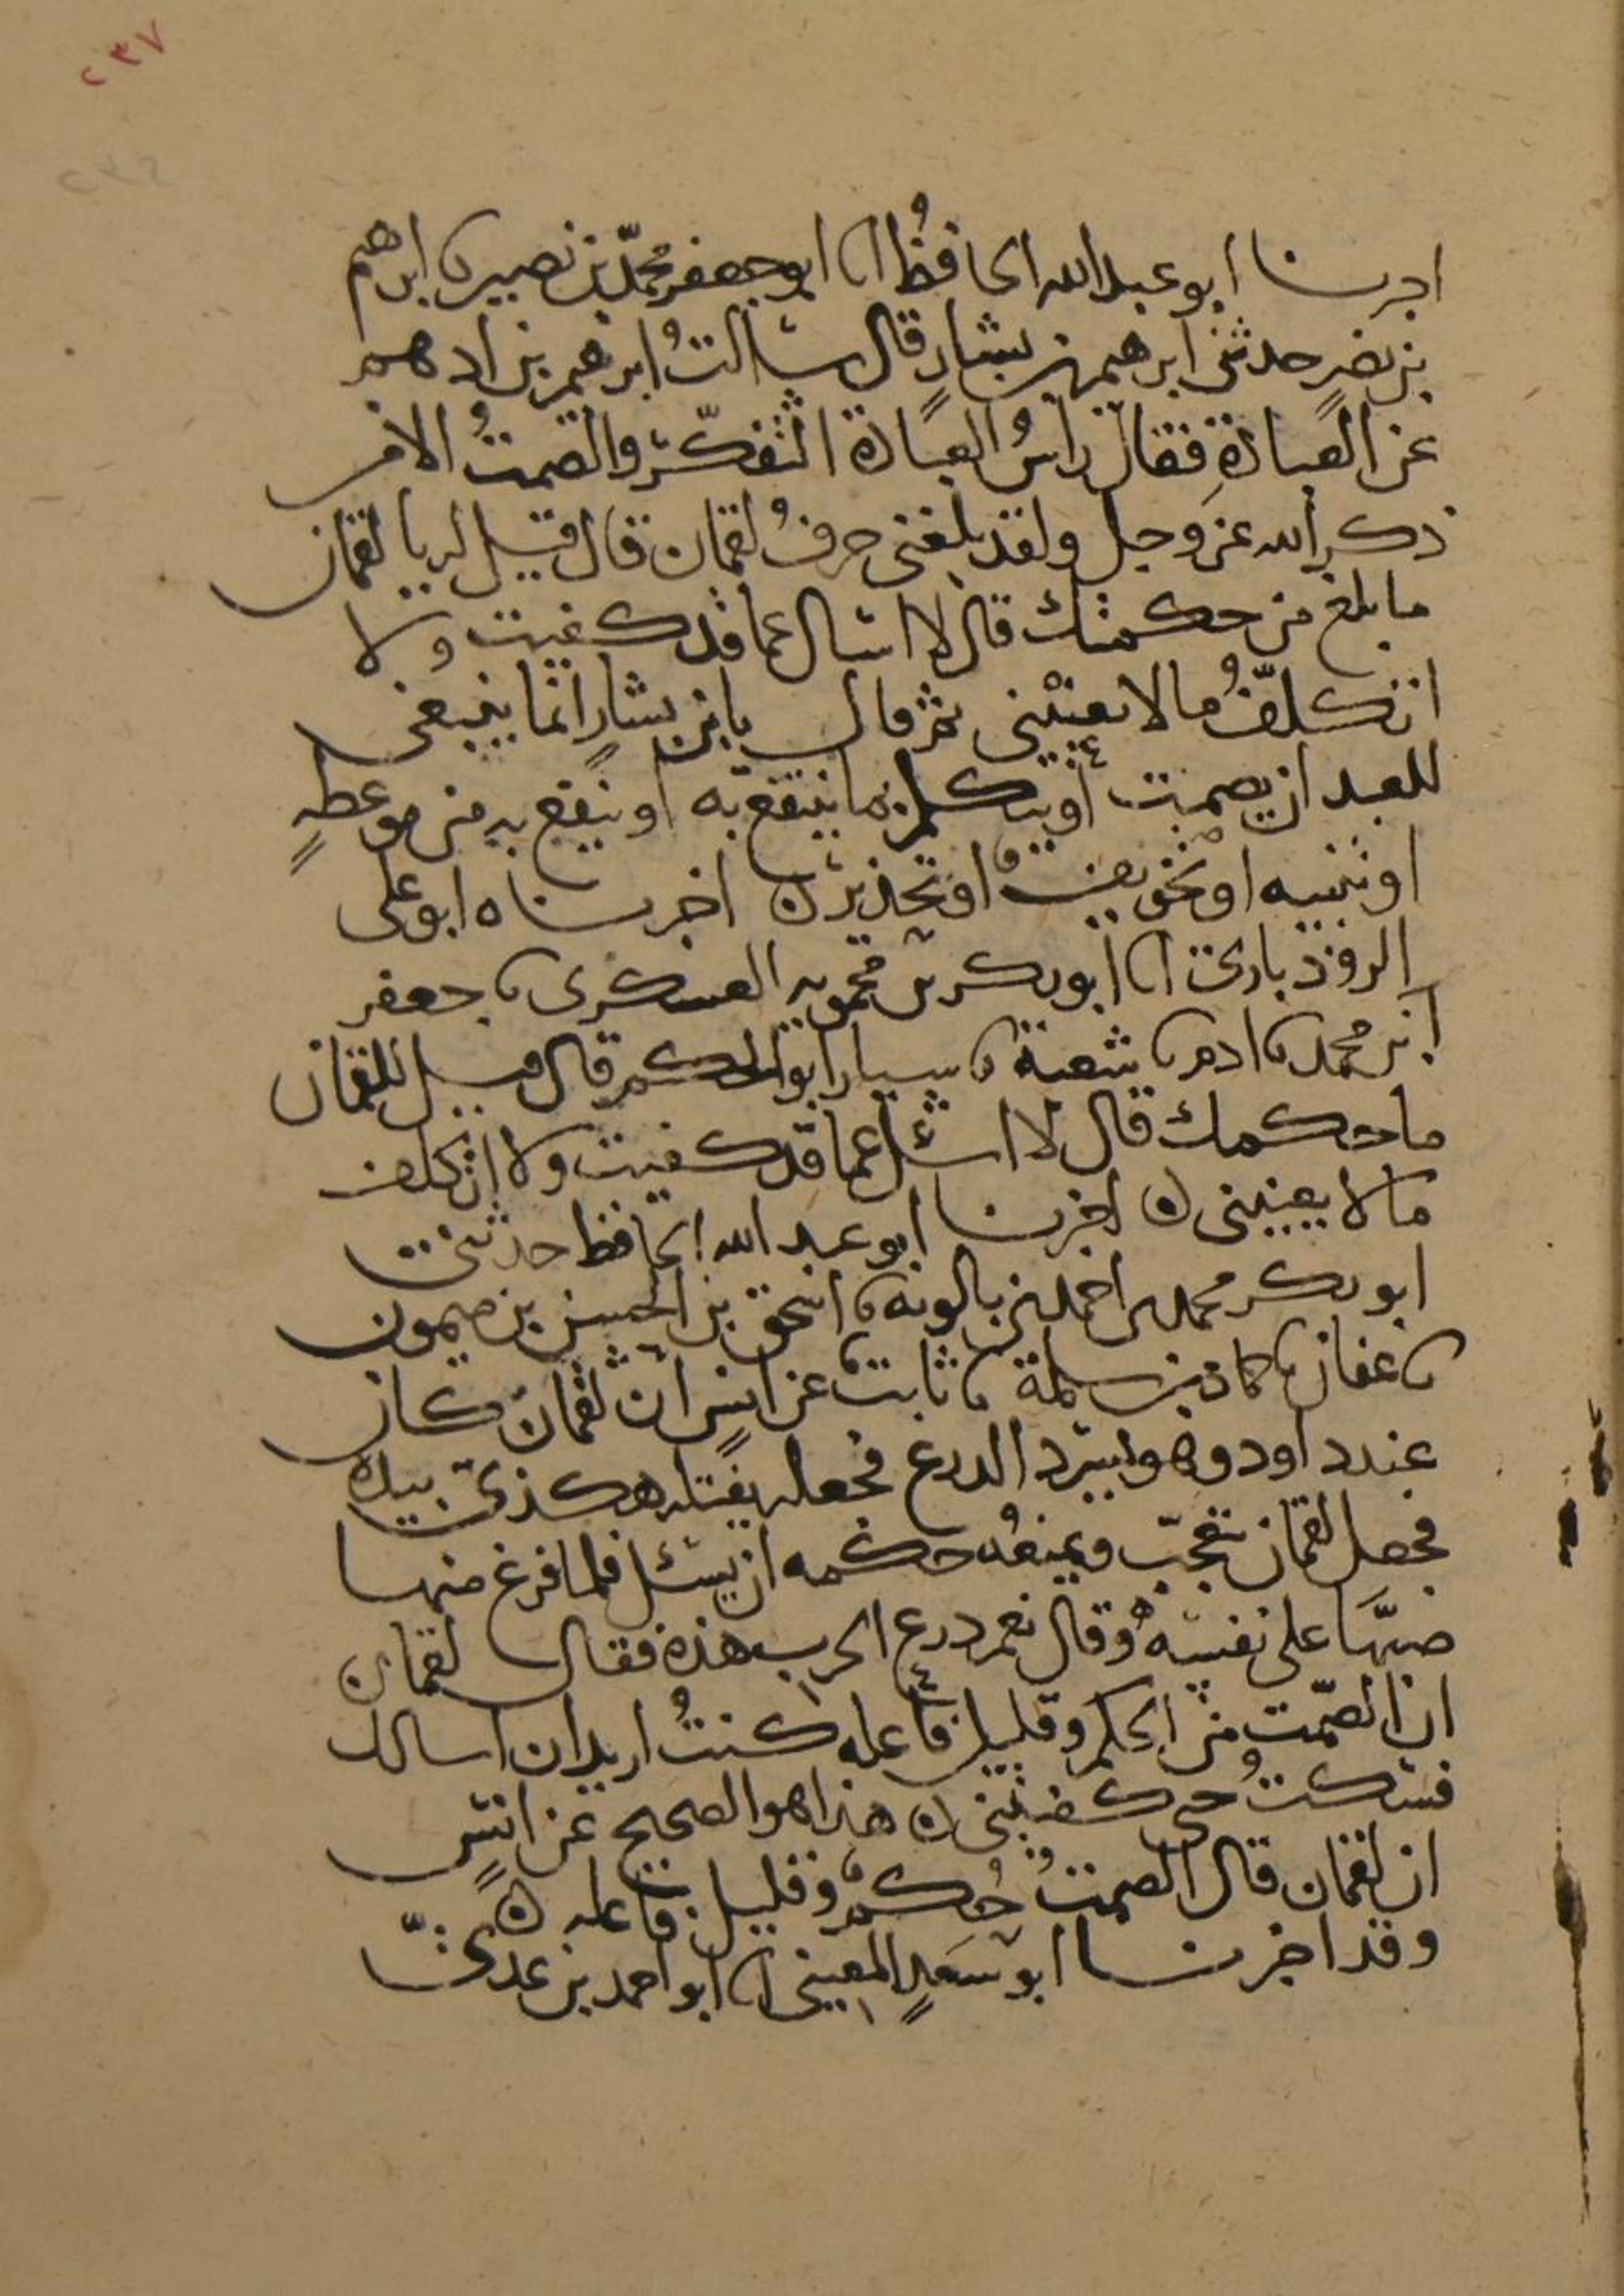 ٢٣٧
٢٣٤
اخبرنا ابو عبد الله الحافظُ انا ابو جعفر محمّد بن نصير نا ابرهيم
بن نصرٍ حدثني ابرهيم بن بشارٍ قال سالتُ ابرهيم بن ادهم
عن العبادةِ فقال راسُ العبادة التفكّر والصمتُ الا من
ذكر الله عز وجل ولقد بلغني حرفُ لقمان قال قيل له يا لقمان
ما بلغ من حكمتك قال لا اسال عما قد كفيت ولا
اتكلّفُ ما لا يعنيْني ثم قال يا بن بشارٍ انما ينبغي
للعبد ان يصمت او يتكلم بما ينتفع به او ينفع به من موعظهٍ
او تنبيه او تخويفٍ او تحذير ن اخبرناه ابو علي
الروذباري انا ابو بكر بن محمويه العسكري نا جعفر
ابن محمد نا ادم نا شعبة نا سيار ابو الحكم قال قيل للقمان
ما حكمتك قال لا اسئل عما قد كفيت ولا اتكلف
ما لا يعنيني ن اخبرنا ابو عبد الله الحافظ حدثني
ابو بكر محمد بن احمد بن بالويه نا اسحق بن الحسن بن ميمون
نا عفان نا حماد بن سلمة نا ثابت عن انسٍ ان لقمانَ كان
عند داود وهو يسرد الدرع فجعل يفتله هكذي بيده
فجعل لقمان يتعجّب ويمنعُه حكمه ان يسئل فلما فرغ منها
صبَّها على نفسه وقال نعم درع الحرب هذه فقال لقمان
ان الصّمت من الحكم وقليل فاعله كنتُ اريد ان اسالك
فسكتُ حتى كفيتني ن هذا هو الصحيح عن انسٍ
ان لقمان قال الصمتُ حُكمٌ وقليل فاعله ن
وقد اخبرنا ابو سعدٍ الماليني انا ابو احمد بن عديّ